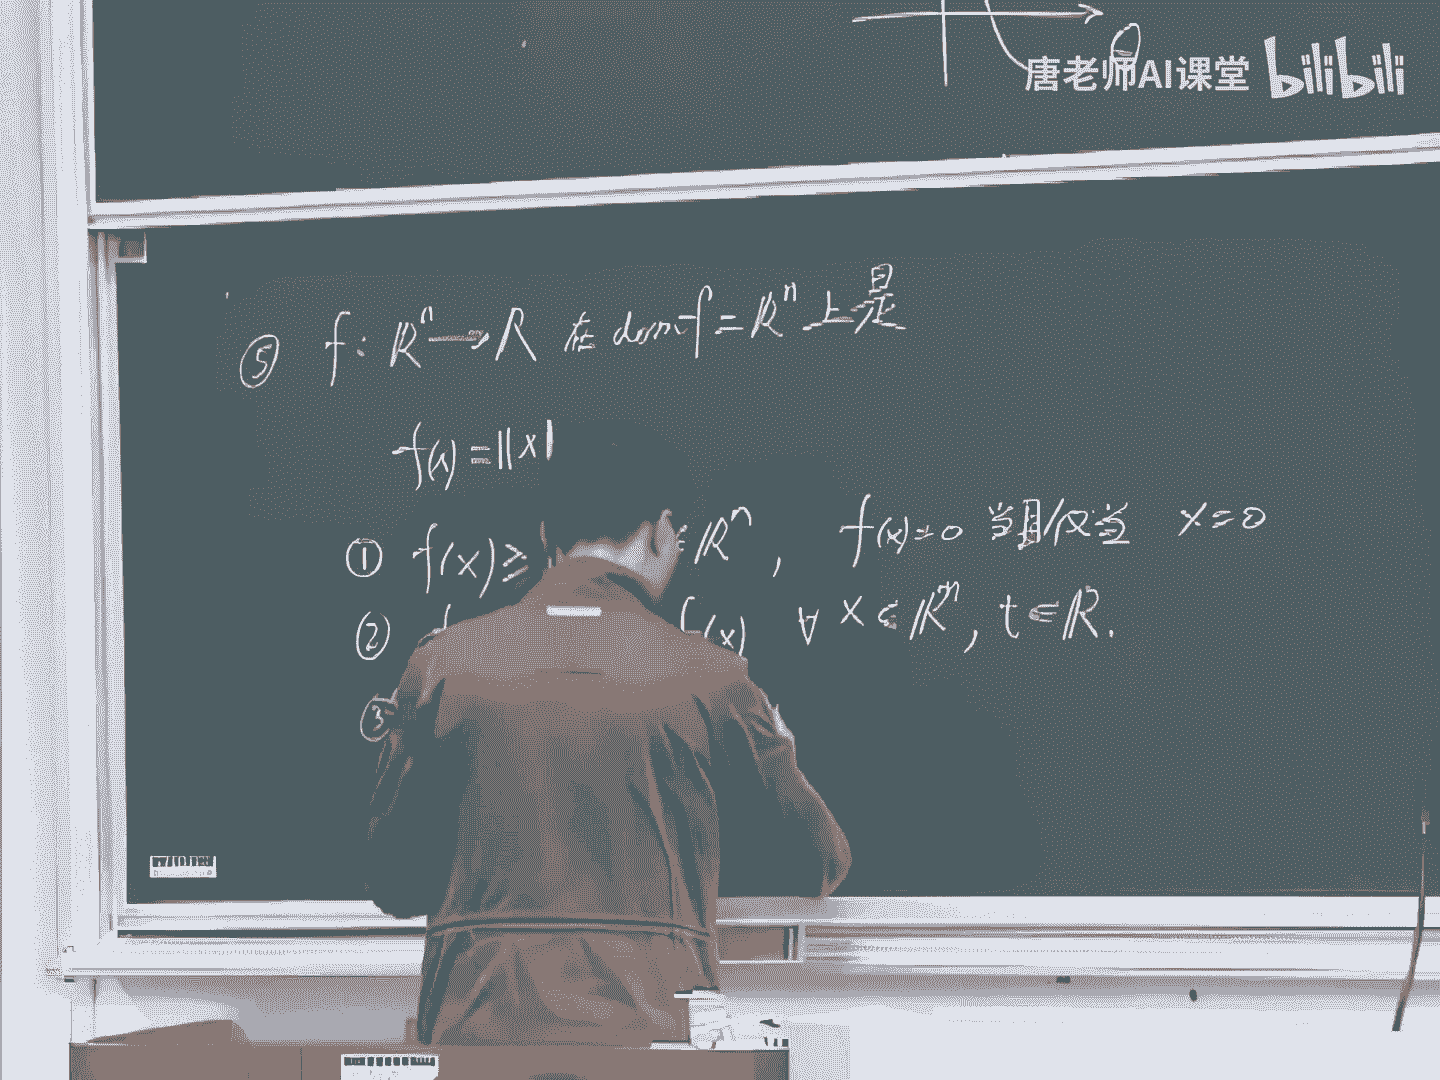 唐老师AI课堂 bilibili
⑤ f: Rⁿ → R 在 dom f = Rⁿ 上是
f(x) = ||x|
① f(x) ≥ ∈ Rⁿ, f(x)=0 当且仅当 x=0
② f(x) ∀ x ∈ Rⁿ, t ∈ R.
③